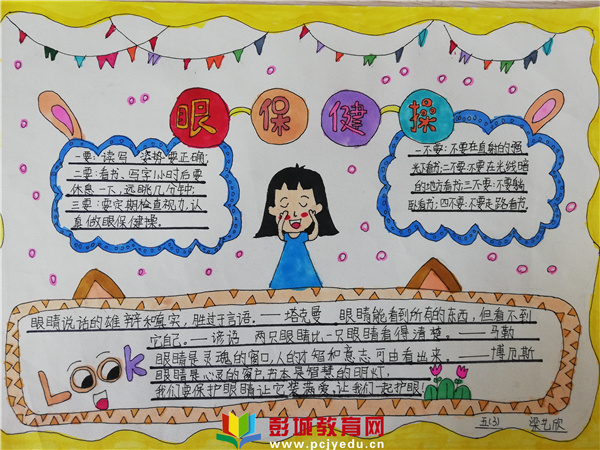 眼保健操
一要:读写 姿势要正确;
二要:看书、写字1小时后要
休息一下,远眺几分钟;
三要:要定期检查视力,认
真做眼保健操。
一不要:不要在直射的强
光下看书;二不要:不要在光线暗
的地方看书;三不要:不要躺
卧看书;四不要:不要走路看书。
眼睛说话的雄辩和真实,胜过于言语。——塔克曼 眼睛能看到所有的东西,但看不到
它自己。——谚语 两只眼睛比一只眼睛看得清楚。——马勒
眼睛是灵魂的窗口,人的才智和意志可由看出来。——博厄斯
眼睛是心灵的窗户,书本是智慧的明灯,
我们要保护眼睛让它装满爱,让我们一起护眼!
Look
五(3) 梁艺欣
彭城教育网
www.pcjyedu.cn